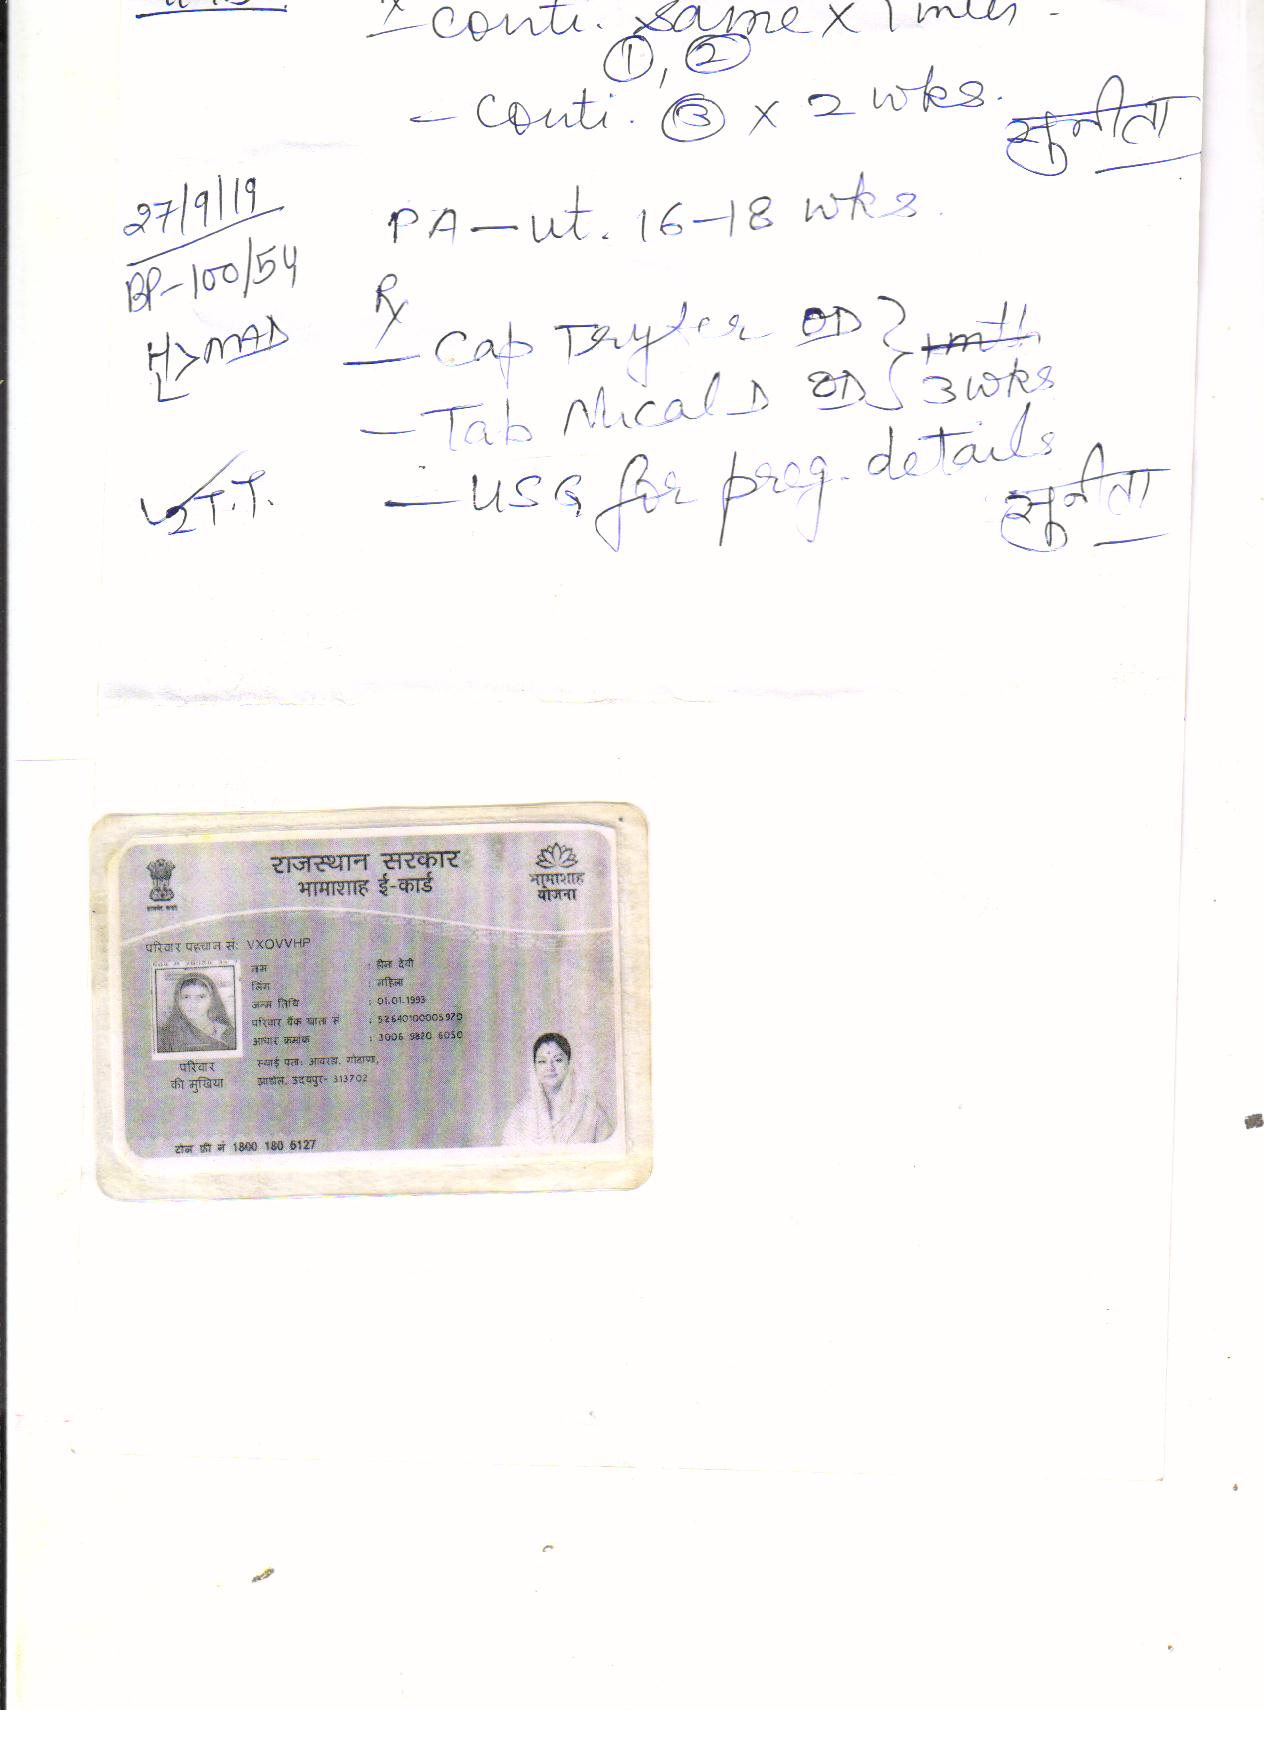 - conti. same x 1 mth.
①, ②
- conti. ③ x 2 wks.
सुनीता
27/9/19
PA - ut. 16-18 wks.
BP-100/54
Rx
H > NAD
L
- Cap OD } 1mth
- Tab D OD } 3 wks
T.T.
- USG for preg. details
सुनीता
राजस्थान सरकार
भामाशाह ई-कार्ड
भामाशाह
योजना
परिवार पहचान सं: VXOVVHP
नाम : देवी
लिंग : महिला
जन्म तिथि : 01.01.1993
परिवार बैंक खाता सं : 52640100005970
आधार क्रमांक : 3006 9820 6050
परिवार
की मुखिया
स्थाई पता: गोठाणा,
झाडोल, उदयपुर- 313702
टोल फ्री नं 1800 180 6127